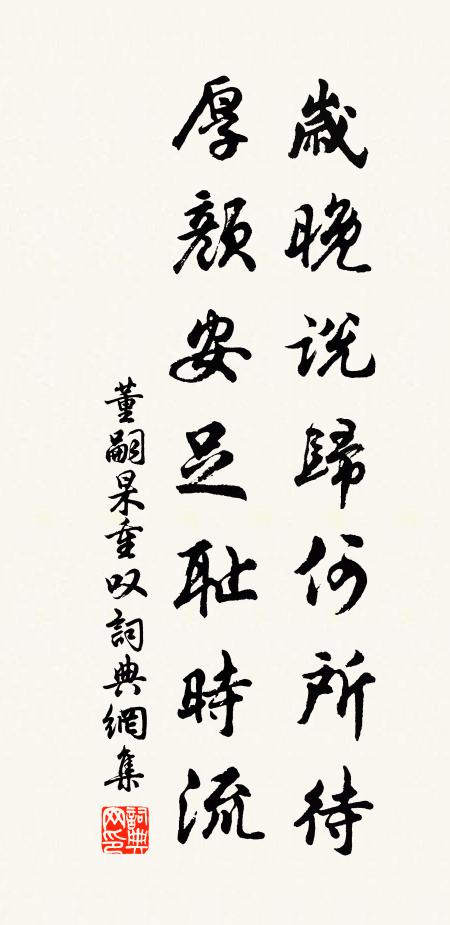 歲晚說歸何所待
厚顏安足耻時流
董嗣杲重叹詞典網集
詞典網印